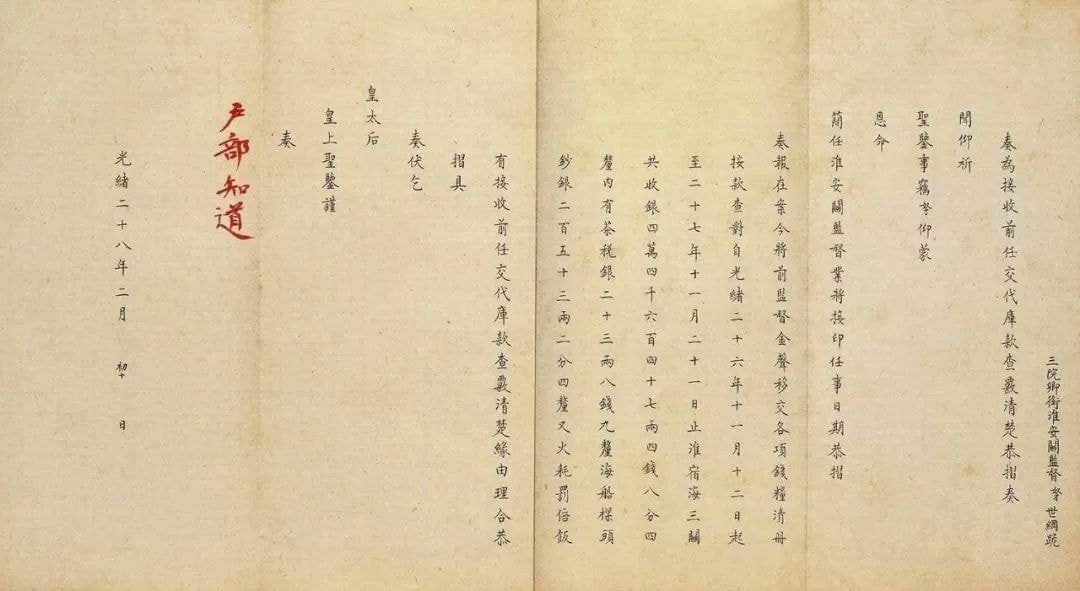 三院卿銜淮安關監督奴才世綱跪
奏為接收前任交代庫款查覈清楚恭摺奏
聞仰祈
聖鑒事竊奴才仰蒙
恩命
簡任淮安關監督業將接印任事日期恭摺
奏報在案今將前監督金聲移交各項錢糧清冊
按款查對自光緒二十六年十一月十二日起
至二十七年十一月二十一日止淮宿海三關
共收銀四萬四千六百四十七兩四錢八分四
釐內有茶稅銀二十三兩八錢九釐海船樑頭
鈔銀二百五十三兩二分四釐又火耗罰倍飯
有接收前任交代庫款查覈清楚緣由理合恭
摺具
奏伏乞
皇太后
皇上聖鑒謹
奏
戶部知道
光緒二十八年二月 初十 日